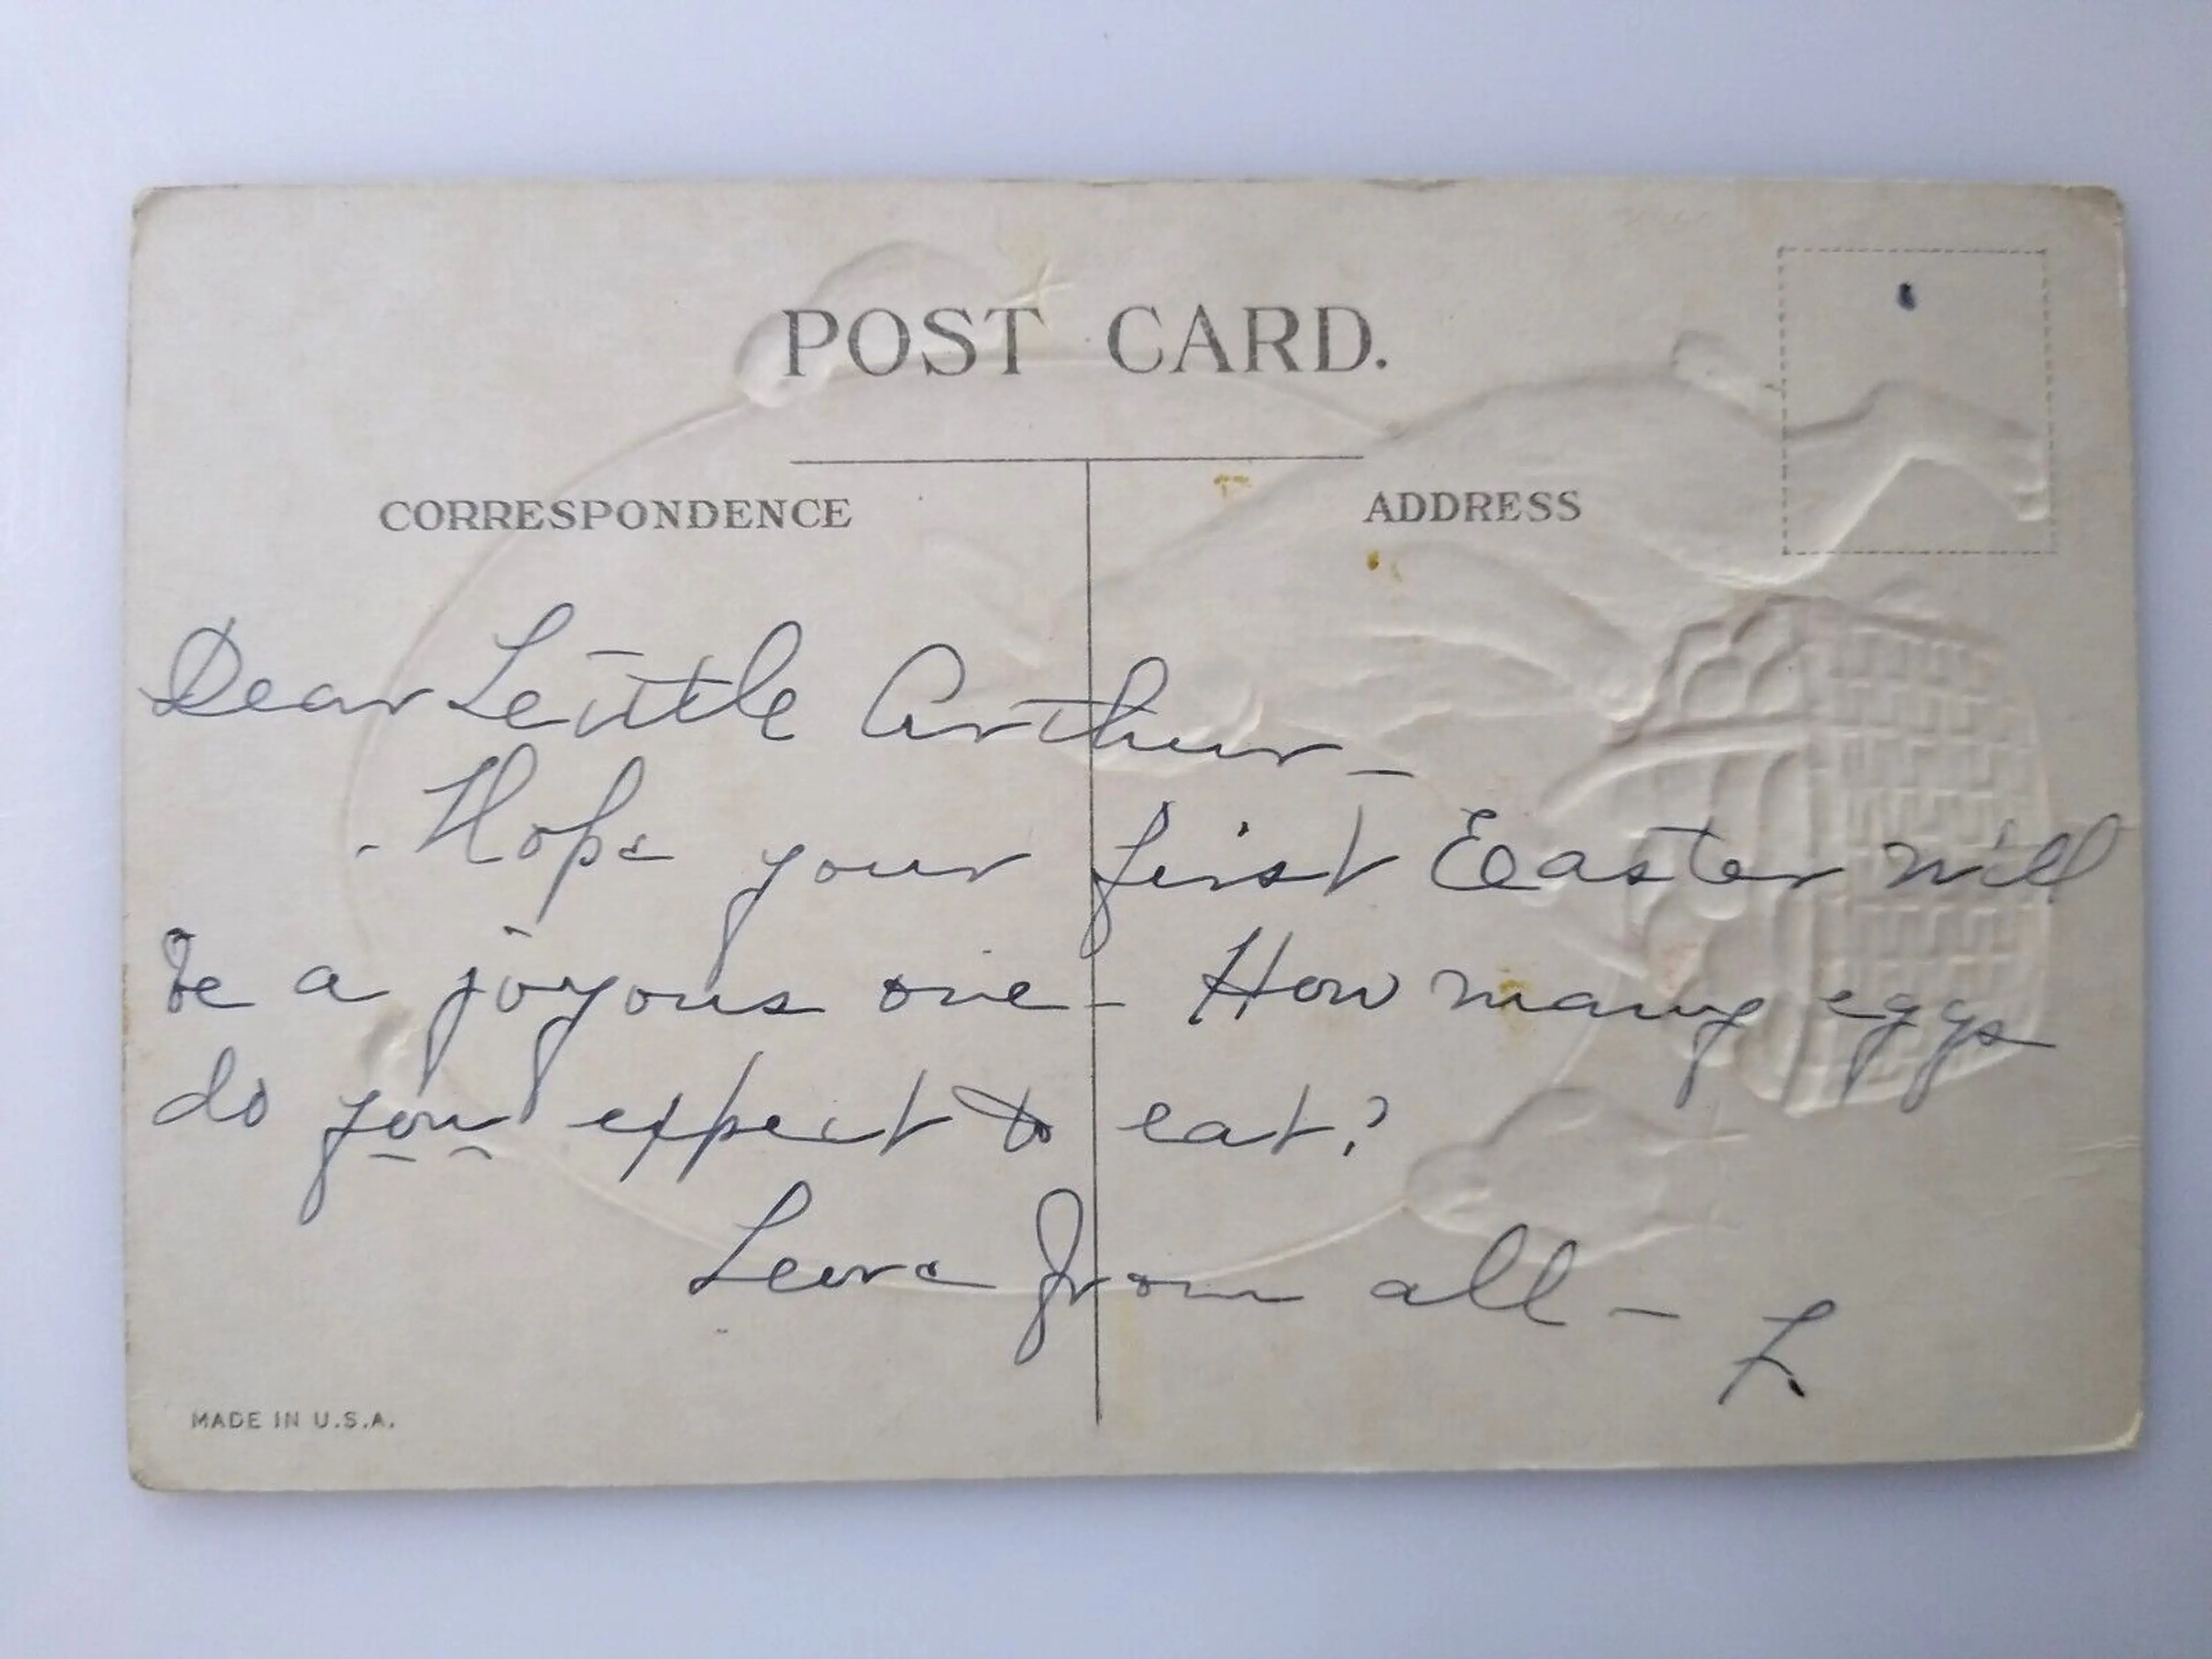 POST CARD.
CORRESPONDENCE
ADDRESS
Dear Little Arthur -
Hope your first Easter will
be a joyous one - How many eggs
do you expect to eat?
Love from all - L
MADE IN U.S.A.